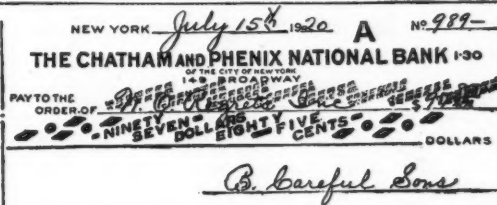 NEW YORK July 15th 1920 A No 989-
THE CHATHAM AND PHENIX NATIONAL BANK 1-30
OF THE CITY OF NEW YORK
149 BROADWAY
PAY TO THE
ORDER OF $
NINETY SEVEN DOLLARS EIGHTY FIVE CENTS
DOLLARS
B. Careful Sons